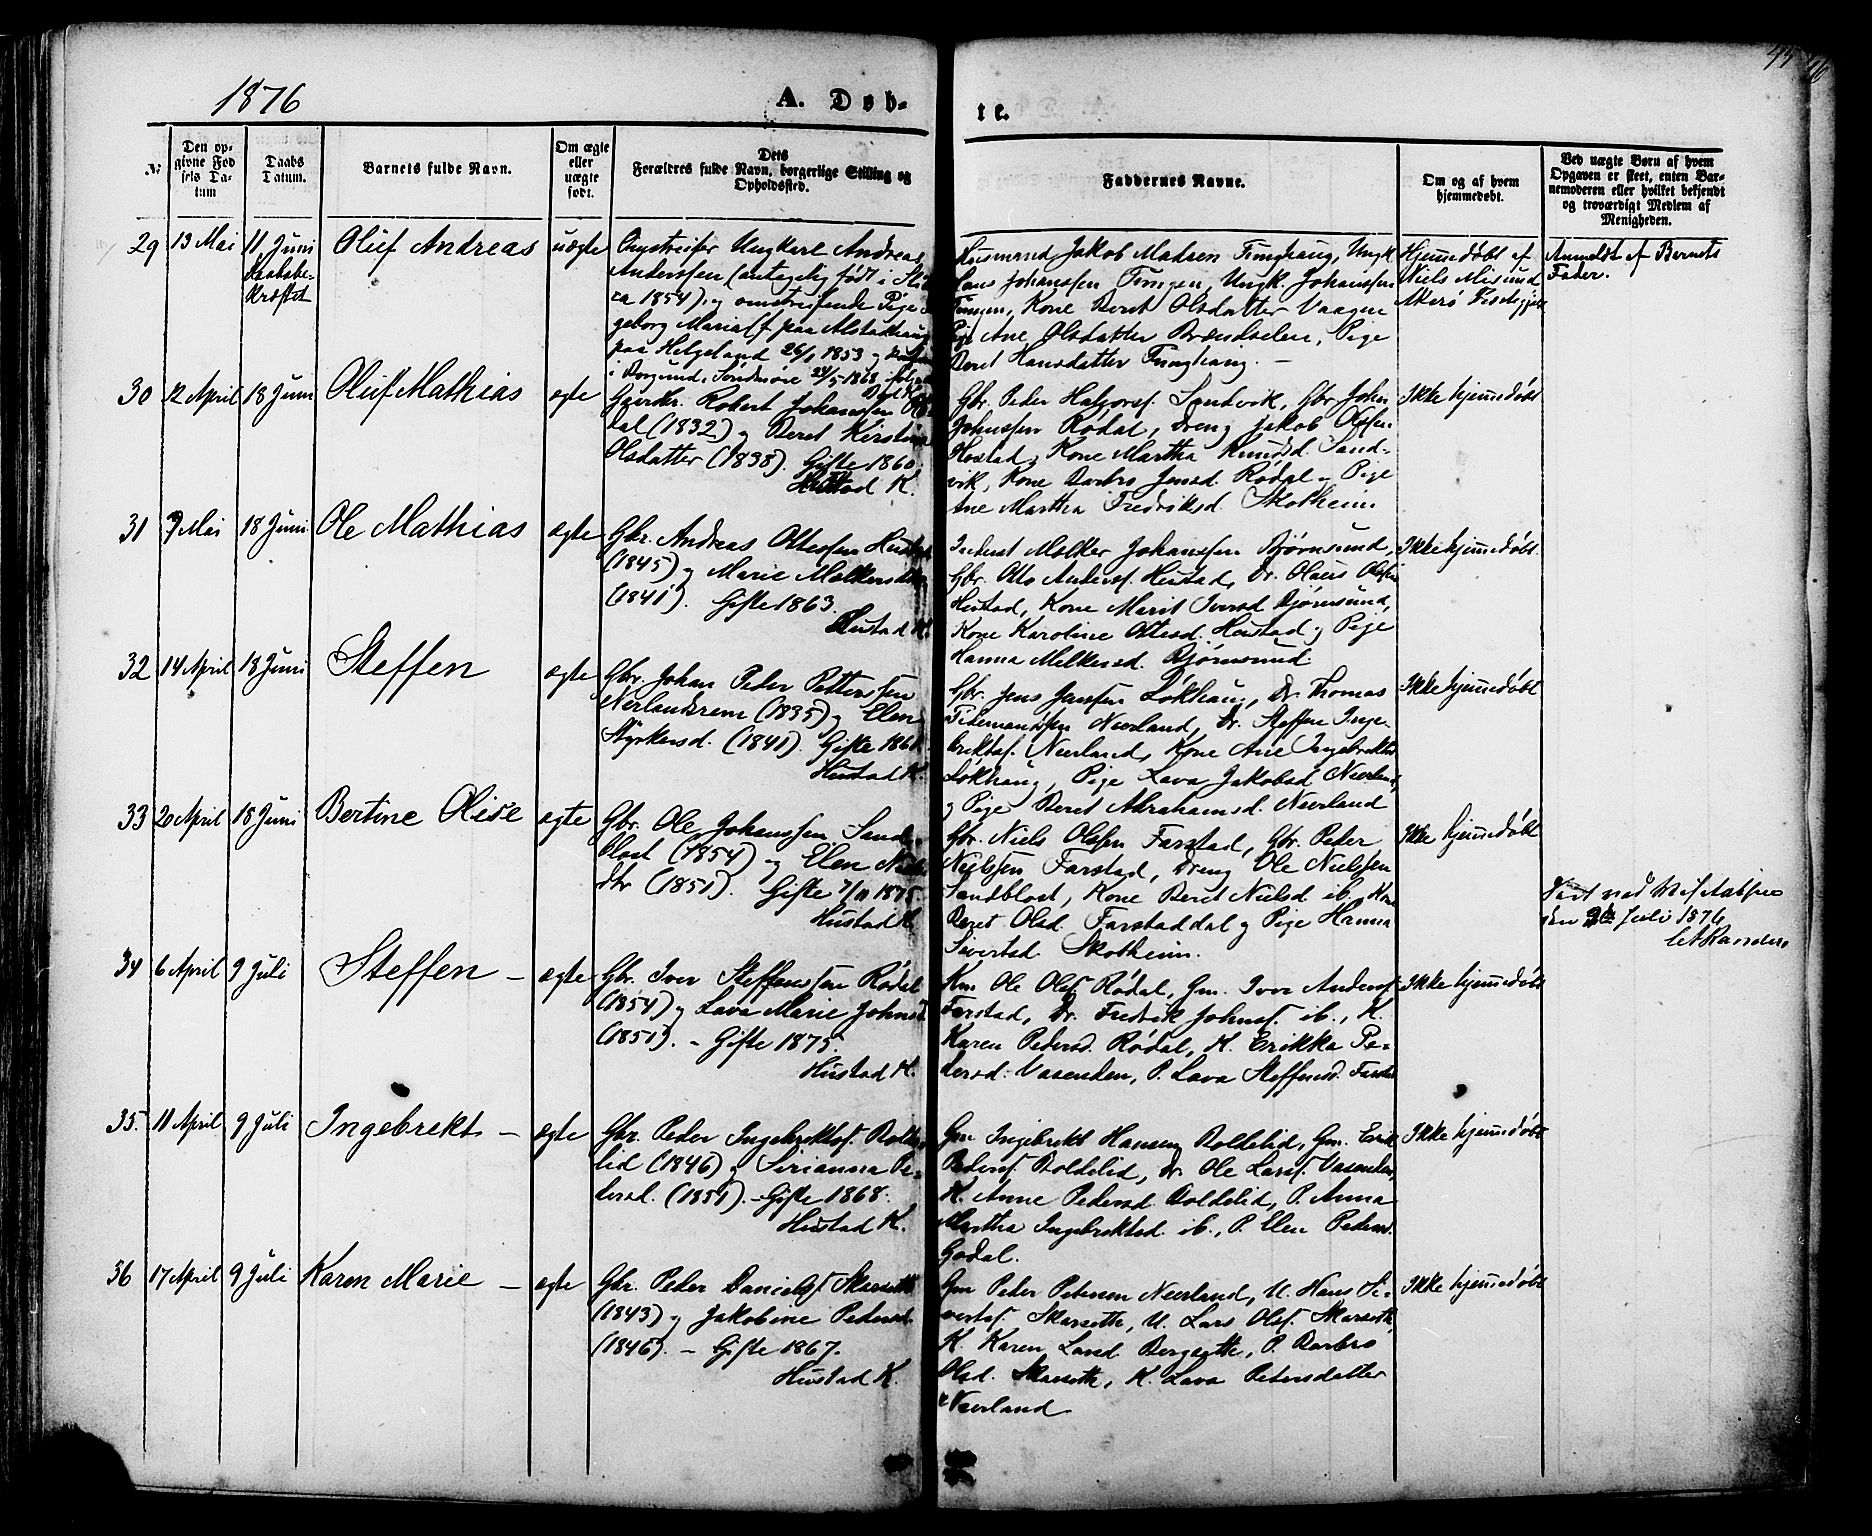 1876
A. Døb-
te.
№
Den op-
givne Fød
sels Da-
tum
Daabs
Datum.
Barnets fulde Navn.
Om ægte
eller
uægte
født.
Dets
Forældres fulde Navn, borgerlige Stilling og
Opholdssted.
Faddernes Navne.
Om og af hvem
hjemmedøbt.
Ved uægte Børn af hvem
Opgaven er skeet, enten Bar-
nemoderen eller hvilket bekjendt
og troværdigt Medlem af
Menigheden.
29 13 Mai 11 Juni
Daabsbe-
kræftet
Oluf Andreas uægte
Omstreifer Ungkarl Andreas
Anderssen (antagelig født i
ca 1854) og omstreifende Pige
geborg Maria (f. paa Alstadhaug
paa Helgeland 26/1 1853 og
i Borgund, Søndmøre 24/5 1868
Husmand Jakob Madsen Tunghaug, Ungk.
Hans Johanssen Tungen, Ungk. Johanssen
Tungen, Kone Beret Olsdatter Vaagen
Pige Ane Olsdatter Brændselen, Pige
Beret Hansdatter Tunghaug. —
Hjemmedøbt af
Niels Misund
Akerø
Anmeldt af Barnets
Fader.
30 12 April 18 Juni Oluf Mathias ægte
Gaardbr. Robert Johanssen
dal (1832) og Beret Kirstina
Olsdatter (1838). Gifte 1860.
Hustad K.
Gbr. Peder Halvorsf. Sandvik, Gbr. John
Johnssen Rødal, Dreng Jakob Olssen
Hostad, Kone Martha Knudsd. Sand-
vik, Kone Barbro Jensd. Rødal og Pige
Ane Martha Fredriksd. Skotheim
Ikke hjemmedøbt
31 9 Mai 18 Juni Ole Mathias ægte
Gbr. Andreas Ottessen Hustad
(1845) og Marie Melkersdatter
(1841). Gifte 1863.
Hustad K.
Inderst Melker Johanssen Bjørnsund,
Gbr. Otto Andersf. Hustad, Dr. Olaus Olssen
Hustad, Kone Marit Iversd Bjørnsund,
Kone Karoline Ottesd. Hustad og Pige
Hanna Melkersd. Bjørnsund.
Ikke hjemmedøbt.
32 14 April 18 Juni Steffen ægte
Gbr. Johan Peder Petterssen
Nerlandsrem (1835) og Elen
Styrkersd. (1841). Gifte 1861.
Hustad K.
Gbr. Jens Jenssen Løkhaug, Dr. Thomas
Tidemandssen Nerland, Dr. Steffen Inge-
briktsf. Nerland, Kone Ane Ingebriktsd
Løkhaug, Pige Lava Jakobsd Nerland
og Pige Beret Abrahamsd. Nerland
Ikke hjemmedøbt
33 20 April 18 Juni Bertine Olise ægte
Gbr. Ole Johanssen Sand-
blost (1854) og Elen Niels-
dtr (1851). Gifte 7/11 1875.
Hustad K.
Gbr. Niels Olssen Farstad, Gbr. Peder
Nielssen Farstad, Dreng Ole Nielssen
Sandblost, Kone Beret Nielsd ib., Kone
Beret Olsd. Farstaddal og Pige Hanna
Sivertsd Skotheim.
Ikke hjemmedøbt
den Juli 1876
34 6 April 9 Juli Steffen — ægte
Gbr. Iver Steffenssen Rødal
(1854) og Lava Marie Johnsd.
(1851). – Gifte 1875.
Hustad K.
Km. Ole Olsf. Rødal, Gm. Iver Andersf
Farstad, Dr. Fredrik Johnsf. ib., K.
Karen Pedersd. Rødal, K. Erikka Pe-
dersd. Vasenden, P. Lava Steffensd. Farstad
Ikke hjemmedøbt
35. 11 April 9 Juli Ingebrekt — ægte
Gbr. Peder Ingebriktsf. Bolde-
lid (1846) og Sirianna Pe-
dersd. (1851). – Gifte 1868.
Hustad K.
Gm. Ingebrikt Hansen Boldelid, Gm. Erik
Pedersf. Boldelid, Dr. Ole Larsf. Vasenden,
K. Anne Pedersd Boldelid, P. Anna
Martha Ingebriktsd. ib., P. Elen Pedersd.
Godal.
Ikke hjemmedøbt
36 17 April 9 Juli Karen Marie — ægte
Gbr. Peder Danielsf. Skarseth
(1843) og Jakobine Pedersd.
(1846). – Gifte 1867.
Hustad K.
Gm Peder Petersen Nerland, U. Hans Si-
vertsf. Skarseth, U. Lars Olsf. Skarseth,
K. Karen Larsd Bergseth, P. Barbro
Olsd. Skarseth, K. Lava Petersdatter
Nerland
Ikke hjemmedøbt